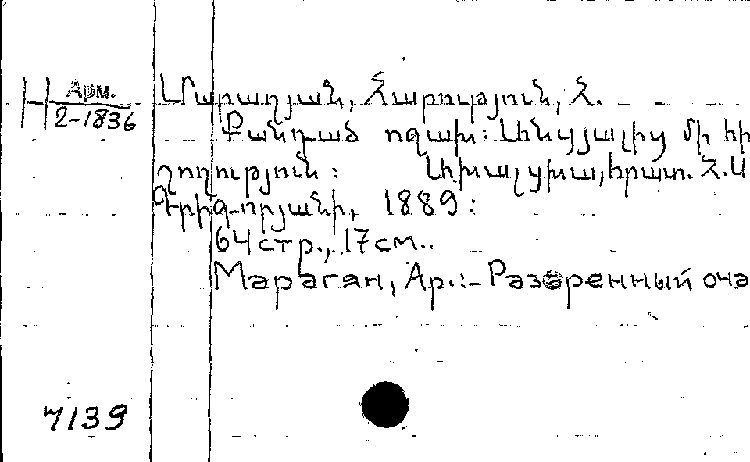 Арм.
Н 2-1836
Մարաղյան, Հարություն, Հ.
Քանդված օջախ: Անցյալից մի հի
շողություն: Ախալցխա, երատ. Հ.Ա
Գրիգորյանի, 1889:
64 стр., 17 см..
Марагян, Ар.:- Разоренный оча
7139